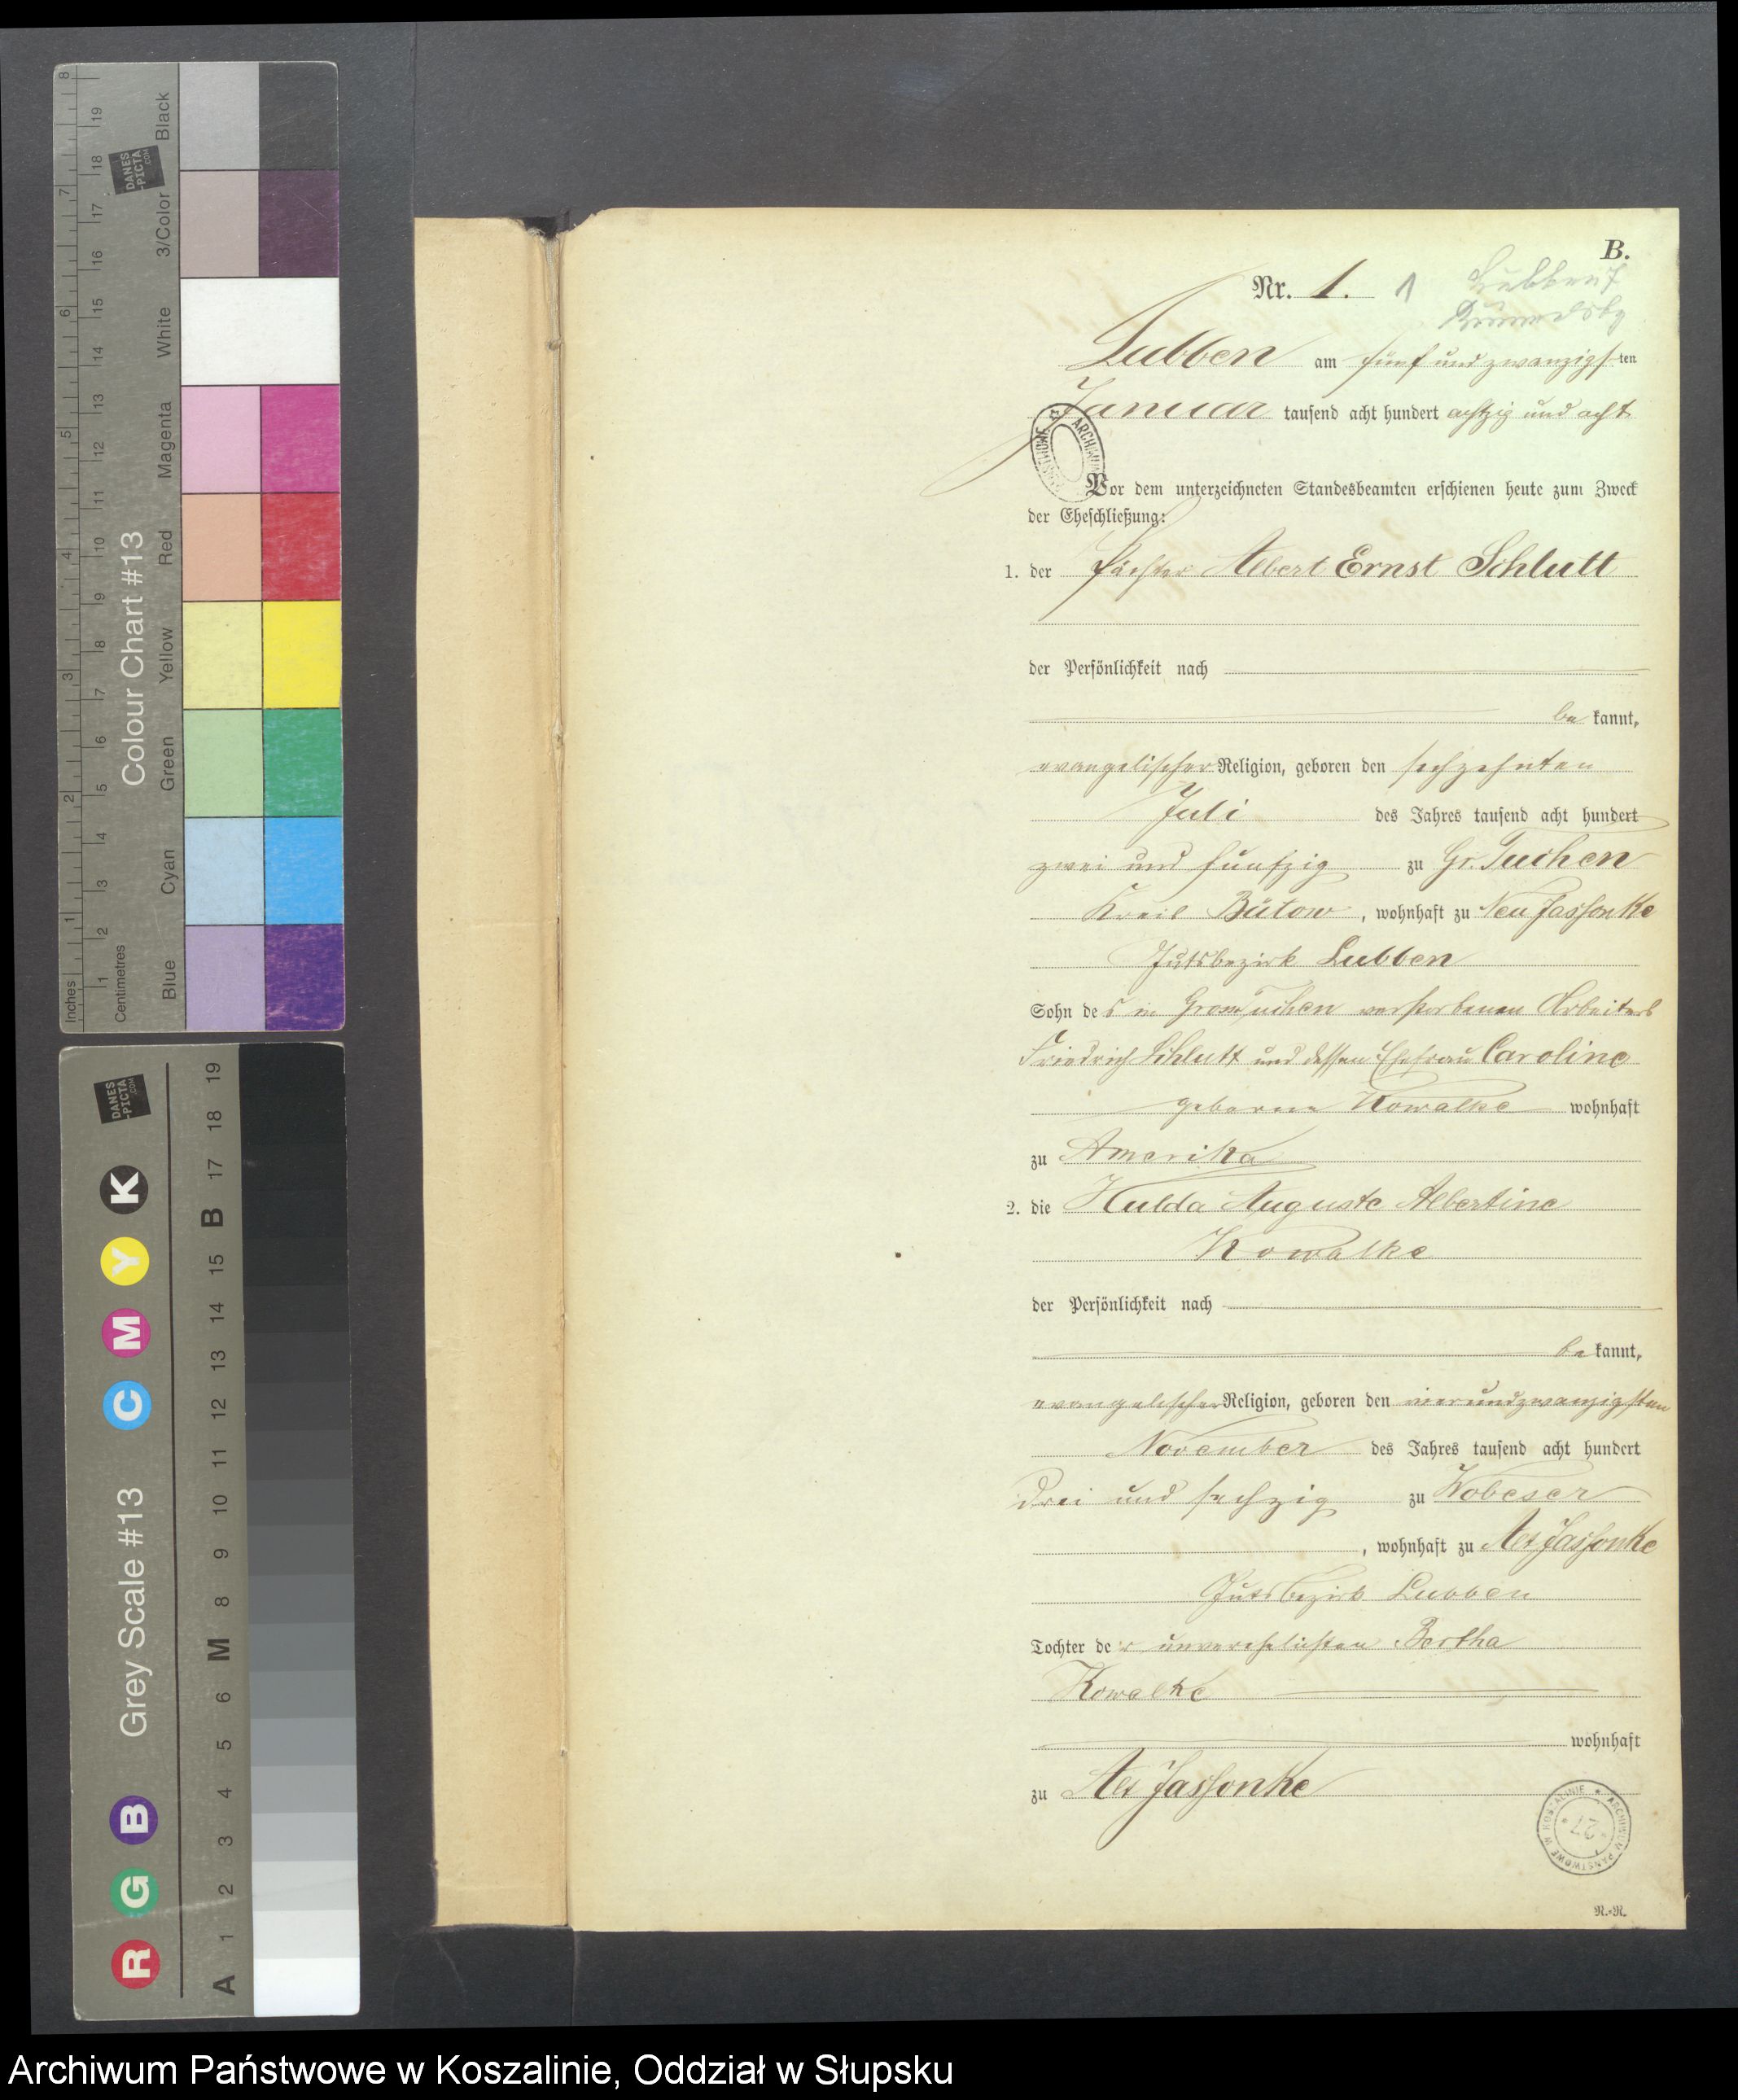 B.
Nr. 1. 1
Lubben am fünfundzwanzigsten
Januar tausend acht hundert achtzig und acht
Vor dem unterzeichneten Standesbeamten erschienen heute zum Zweck
der Eheschließung:
1. der Pächter Albert Ernst Schlutt
der Persönlichkeit nach
be kannt,
evangelischer Religion, geboren den sechzehnten
Juli des Jahres tausend acht hundert
zwei und fünfzig zu Gr. Tuchen
Kreis Bütow, wohnhaft zu Neu Jassonke
Gutsbezirk Lubben
Sohn des in Gross Tuchen verstorbenen Arbeiters
Friedrich Schlutt und dessen Ehefrau Caroline
geborene Kowalke wohnhaft
zu Amerika
2. die Hulda Auguste Albertine
Kowalke
der Persönlichkeit nach
be kannt,
evangelischer Religion, geboren den vierundzwanzigsten
November des Jahres tausend acht hundert
drei und sechzig zu Wobeser
, wohnhaft zu Alt Jassonke
Gutsbezirk Lubben
Tochter der unverehelichten Bertha
Kowalke
wohnhaft
zu Alt Jassonke
ARCHIWUM PAŃSTWOWE W KOSZALINIE
27
R.-R.
Colour Chart #13
Blue Cyan Green Yellow Red Magenta White 3/Color Black
Inches 1 2 3 4 5 6 7 8
Centimetres 1 2 3 4 5 6 7 8 9 10 11 12 13 14 15 16 17 18 19
DANES-PICTA.COM
Grey Scale #13
R G B C M Y K
A 1 2 3 4 5 6 M 8 9 10 11 12 13 14 15 B 17 18 19
DANES-PICTA.COM
Archiwum Państwowe w Koszalinie, Oddział w Słupsku